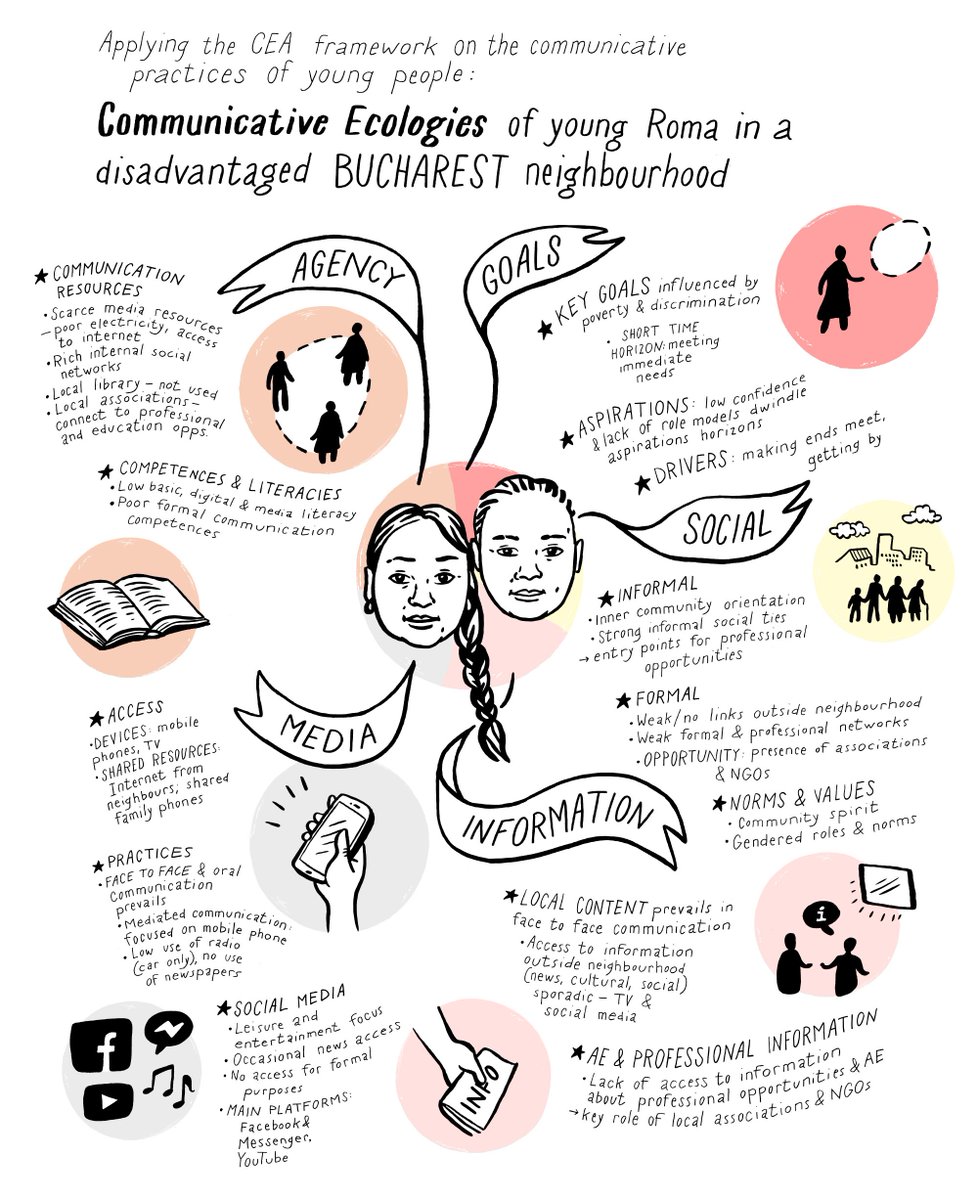 Applying the CEA framework on the communicative
practices of young people:
Communicative Ecologies of young Roma in a
disadvantaged BUCHAREST neighbourhood
AGENCY
★ COMMUNICATION
RESOURCES
• Scarce media resources
– poor electricity, access
to internet
• Rich internal social
networks
• Local library – not used
• Local associations –
connect to professional
and education opps.
★ COMPETENCES & LITERACIES
• Low basic, digital & media literacy
• Poor formal communication
competences
GOALS
★ KEY GOALS influenced by
poverty & discrimination
• SHORT TIME
HORIZON: meeting
immediate
needs
★ ASPIRATIONS: low confidence
& lack of role models dwindle
aspirations horizons
★ DRIVERS: making ends meet,
getting by
SOCIAL
★ INFORMAL
• Inner community orientation
• Strong informal social ties
→ entry points for professional
opportunities
★ FORMAL
• Weak/no links outside neighbourhood
• Weak formal & professional networks
• OPPORTUNITY: presence of associations
& NGOs
★ NORMS & VALUES
• Community spirit
• Gendered roles & norms
MEDIA
★ ACCESS
• DEVICES: mobile
phones, TV
• SHARED RESOURCES:
Internet from
neighbours; shared
family phones
★ PRACTICES
• FACE TO FACE & oral
communication
prevails
• Mediated communication:
focused on mobile phone
• Low use of radio
(car only), no use
of newspapers
★ SOCIAL MEDIA
• Leisure and
entertainment focus
• Occasional news access
• No access for formal
purposes
• MAIN PLATFORMS:
Facebook &
Messenger,
YouTube
f
INFORMATION
★ LOCAL CONTENT prevails in
face to face communication
• Access to information
outside neighbourhood
(news, cultural, social)
sporadic – TV &
social media
i
INFO
★ AE & PROFESSIONAL INFORMATION
• Lack of access to information
about professional opportunities & AE
→ key role of local associations & NGOs